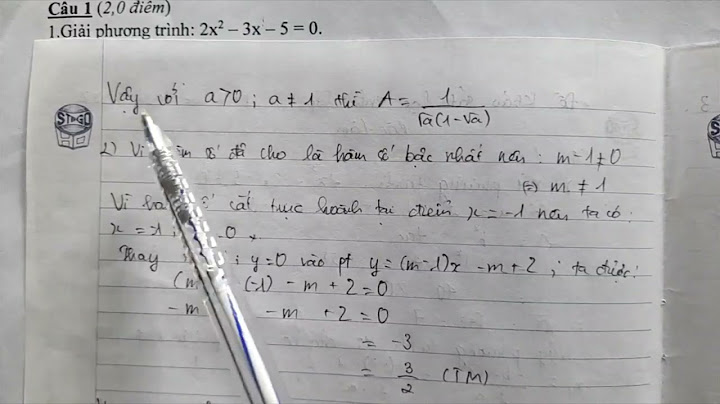 Câu 1 (2,0 điểm)
1.Giải phương trình: 2x² – 3x – 5 = 0.
Vậy với a>0 ; a ≠ 1 thì A = 1/(√a(1-√a))
STGO
2) Vì số đã cho là hàm số bậc nhất nên : m-1≠0
(=) m ≠ 1
Vì số cắt trục hoành tại điểm x = -1 nên ta có :
x = -1 ; 0
Thay ; y=0 vào pt y=(m-1)x -m+2 ; ta được:
(m (-1) - m + 2 = 0
-m -m +2 = 0
= -3
= 3/2 (TM)
3